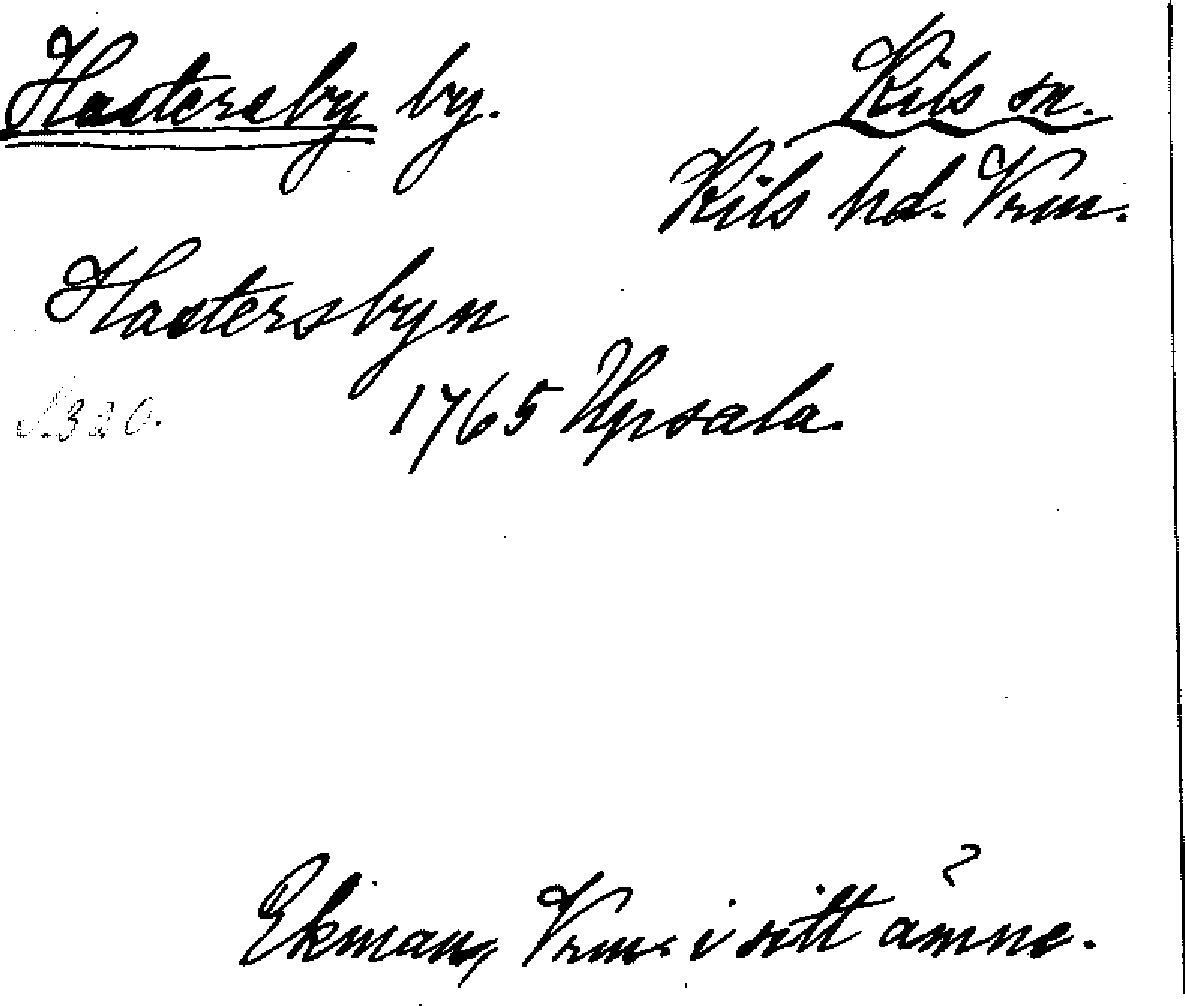 Hastersby by. Kils sn.
Kils hd. Vrm.
Hastersbyn
S. 320. 1765 Upsala.
Ekman, Vrm. i sitt ämne.